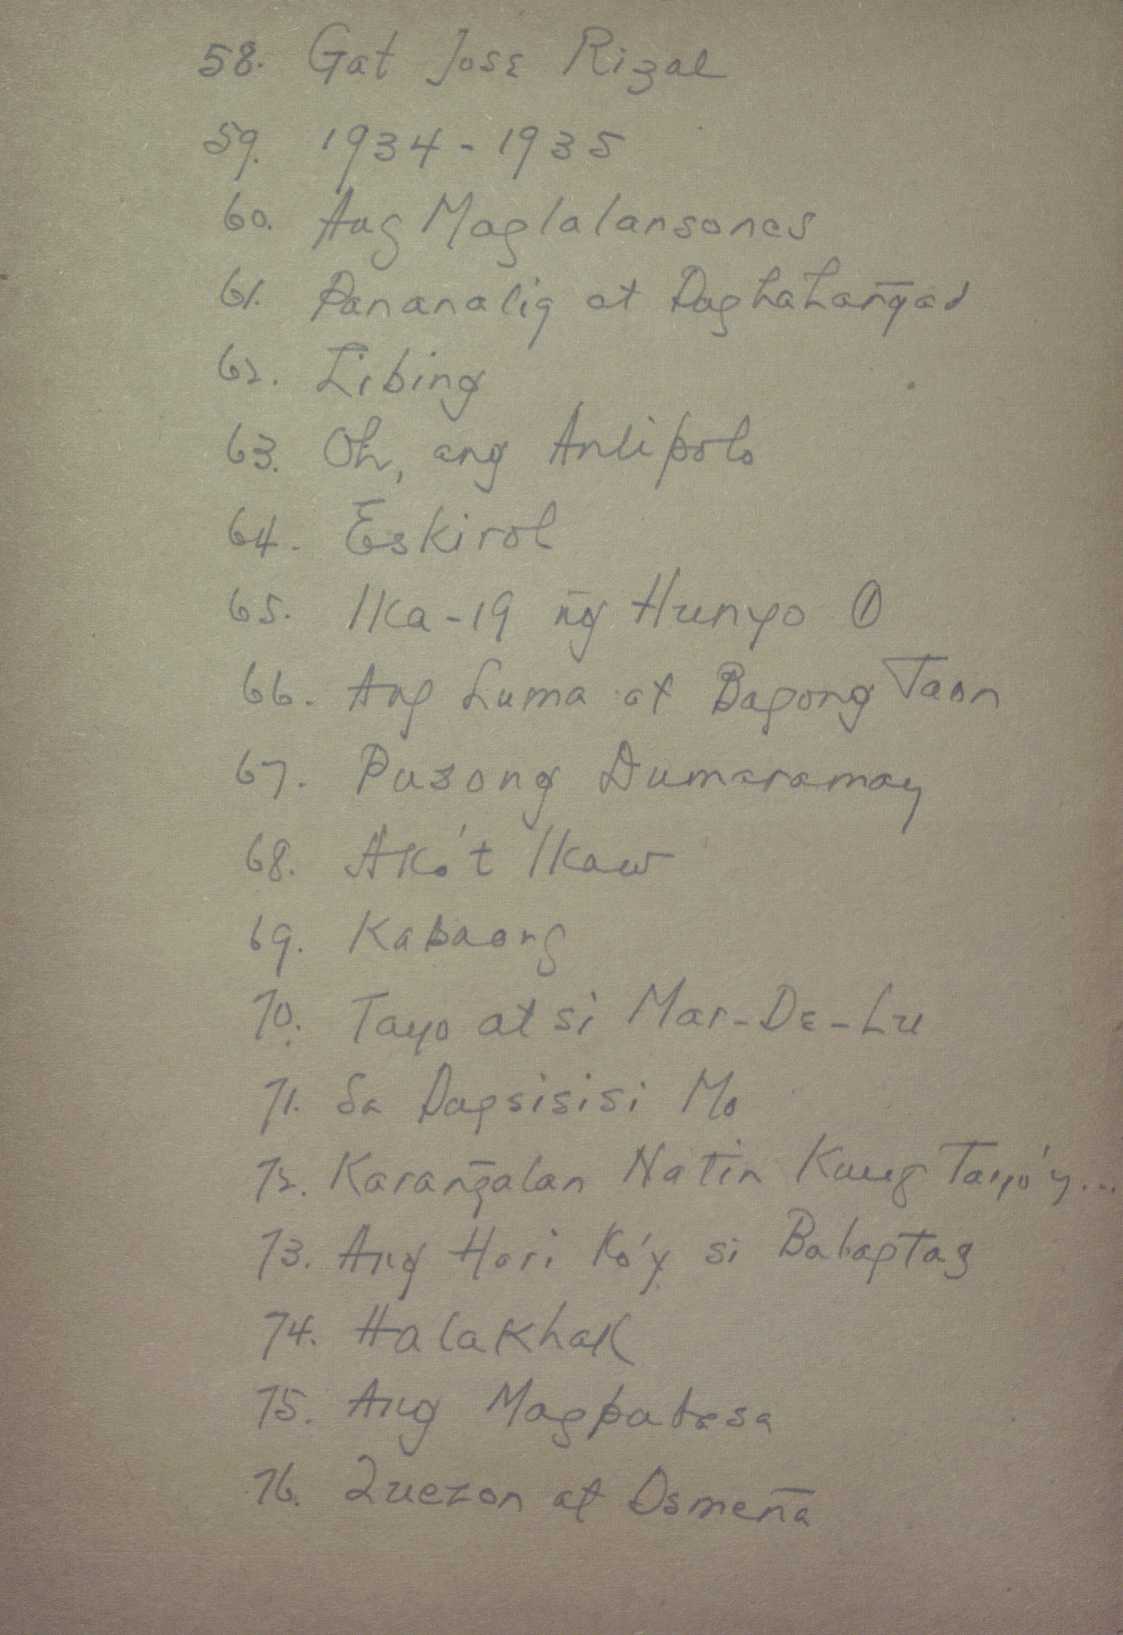 58. Gat Jose Rizal
59. 1934-1935
60. Ang Maglalansones
61. Pananalig at Paghahan̄gad
62. Libing
63. Oh, ang Antipolo
64. Eskirol
65. Ika-19 n̄g Hunyo ①
66. Ang Luma at Bagong Taon
67. Pusong Dumaramay
68. Ako't Ikaw
69. Kabaong
70. Tayo at si Mar-De-Lu
71. Sa Pagsisisi Mo
72. Karan̄galan Natin Kung Tayo'y...
73. Ang Hari Ko'y si Balagtas
74. Halakhak
75. Ang Magpabasa
76. Quezon at Osmeña